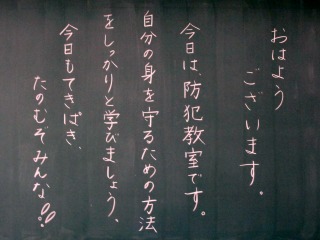 おはよう
ございます。
今日は、防犯教室です。
自分の身を守るための方法
をしっかりと学びましょう、
今日もてきぱき、
たのむぞみんな!!